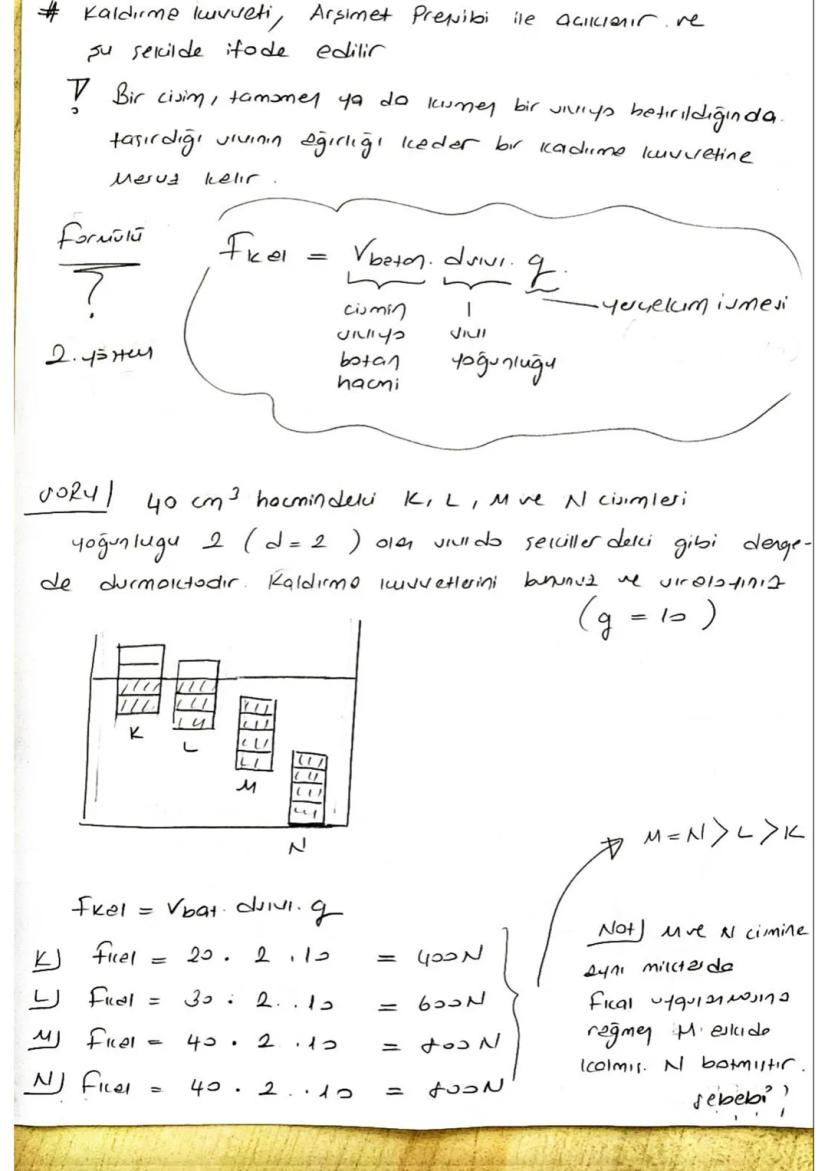 # Kaldırma kuvveti, Arşimet Prensibi ile açıklanır. ve
şu şekilde ifade edilir
Bir cisim, tamamen ya da kısmen bir sıvıya batırıldığında
taşırdığı sıvının ağırlığı kadar bir kaldırma kuvvetine
maruz kalır.
Formülü
?
2. yöntem
Fkal = Vbatan. dsıvı. g.
yerçekim ivmesi
cismin
sıvıya
batan
hacmi
sıvı
yoğunluğu
SORU) 40 cm³ hacmindeki K, L, M ve N cisimleri
yoğunlugu 2 (d = 2) olan sıvıda şekillerdeki gibi denge-
de durmaktadır. Kaldırma kuvvetlerini bulunuz ve sıralayınız
(g = 10)
K
L
M
N
M = N > L > K
Fkal = Vbat. dsıvı. g
K) Fkal = 20 . 2 . 10 = 400N
L) Fkal = 30 . 2 . . 10 = 600N
M) Fkal = 40 . 2 . 10 = 800N
N) Fkal = 40 . 2 . . 10 = 800N
Not) M ve N cimine
aynı miktarda
Fkal uygulanmasına
rağmen M askıda
kalmış. N batmıştır.
sebebi?